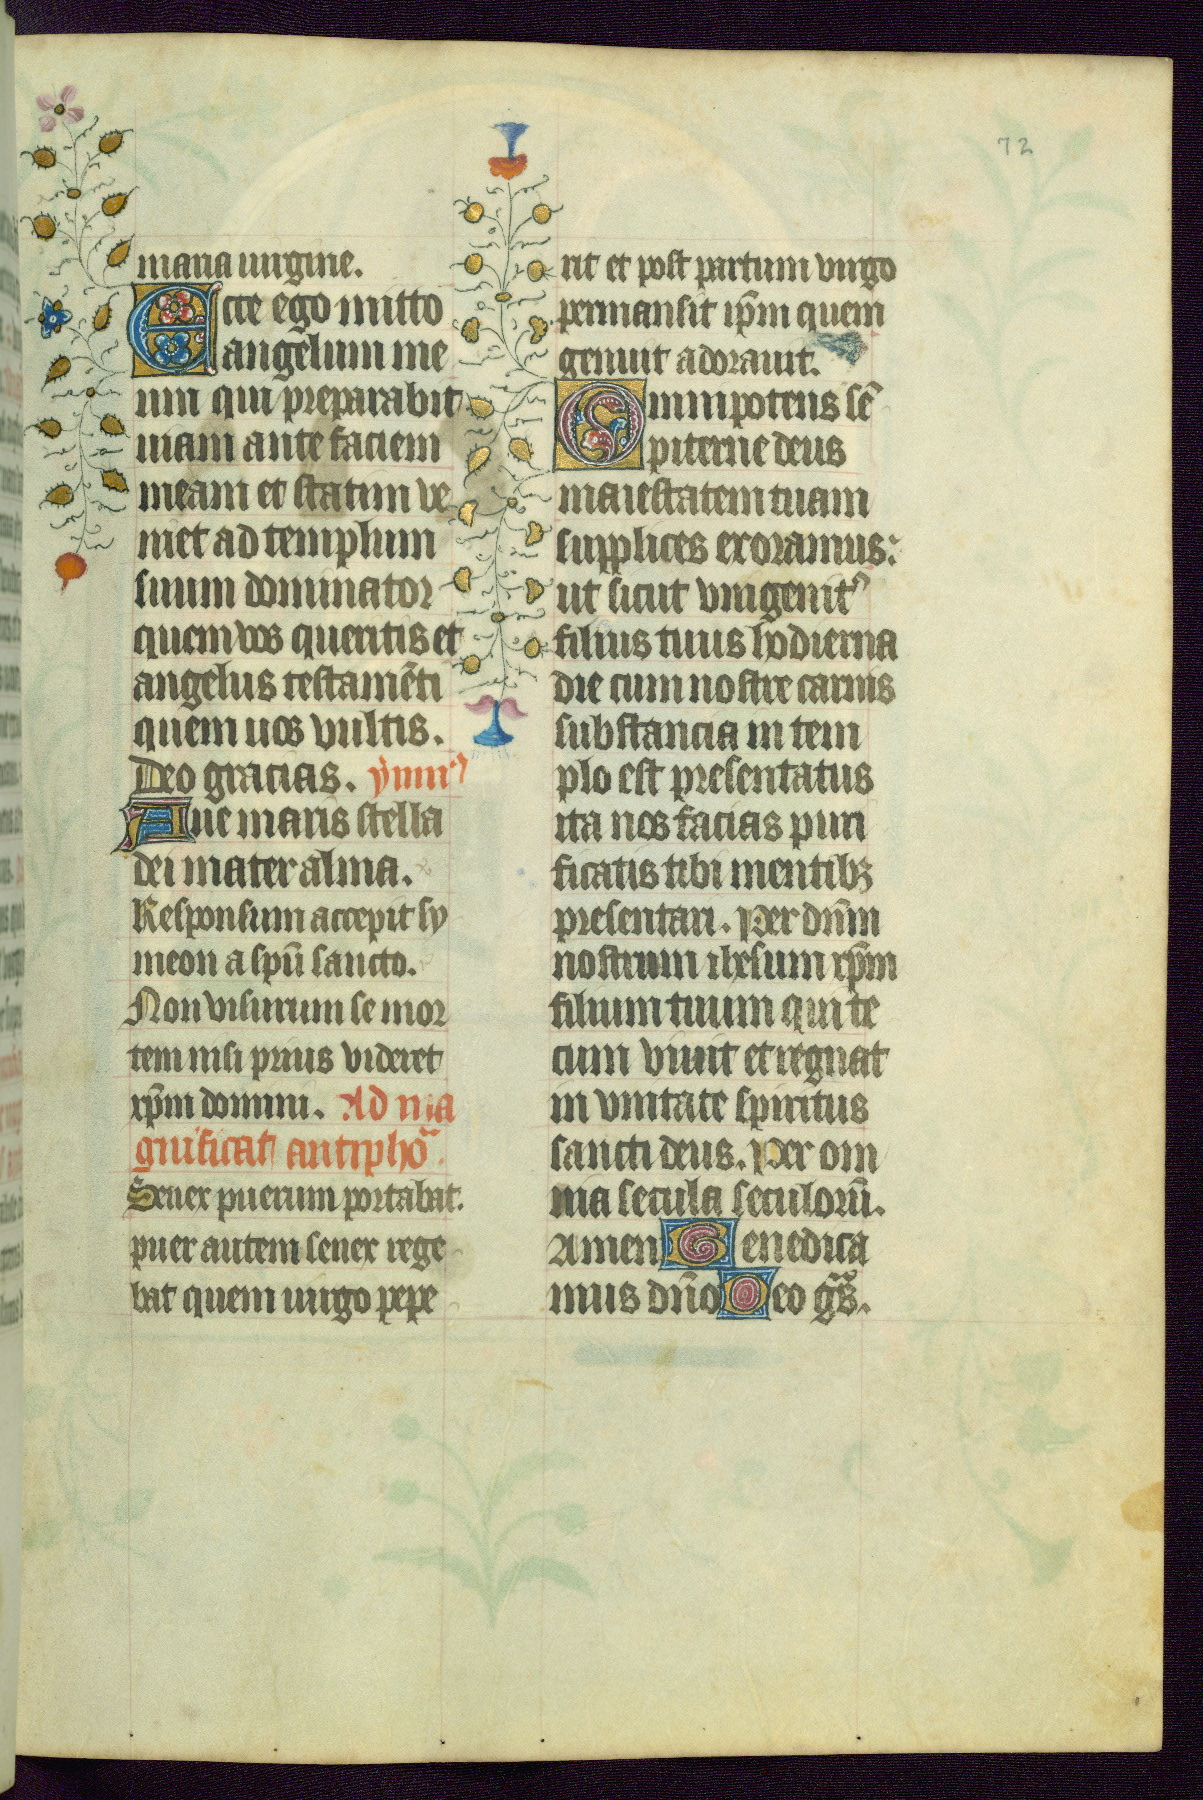 72
maria uirgine.
Ecce ego mitto
angelum me
um qui preparabit
uiam ante faciem
meam et statim ve
niet ad templum
suum dominator
quem vos queritis et
angelus testamēti
quem uos vultis.
Deo gracias. ymnꝰ
Aue maris stella
dei mater alma.
Responsum accepit sy
meon a spū sancto.
Non visurum se mor
tem nisi prius videret
xp̄m domini. Ad ma
gnificat antipho᷑.
Senex puerum portabat.
puer autem senex rege
bat quem uirgo pepe
rit et post partum virgo
permansit ip̄m quem
genuit adorauit.
Omnipotens sē
piterne deus
maiestatem tuam
supplices exoramus:
ut sicut vnigenitꝰ
filius tuus hodierna
die cum nostre carnis
substancia in tem
plo est presentatus
ita nos facias puri
ficatis tibi mentibꝫ
presentari. Per dn̄m
nostrum ihesum xp̄m
filium tuum qui te
cum viuit et regnat
in vnitate spiritus
sancti deus. Per om
nia secula seculorū.
Amen Benedica
mus dn̄o Deo gr̄s.